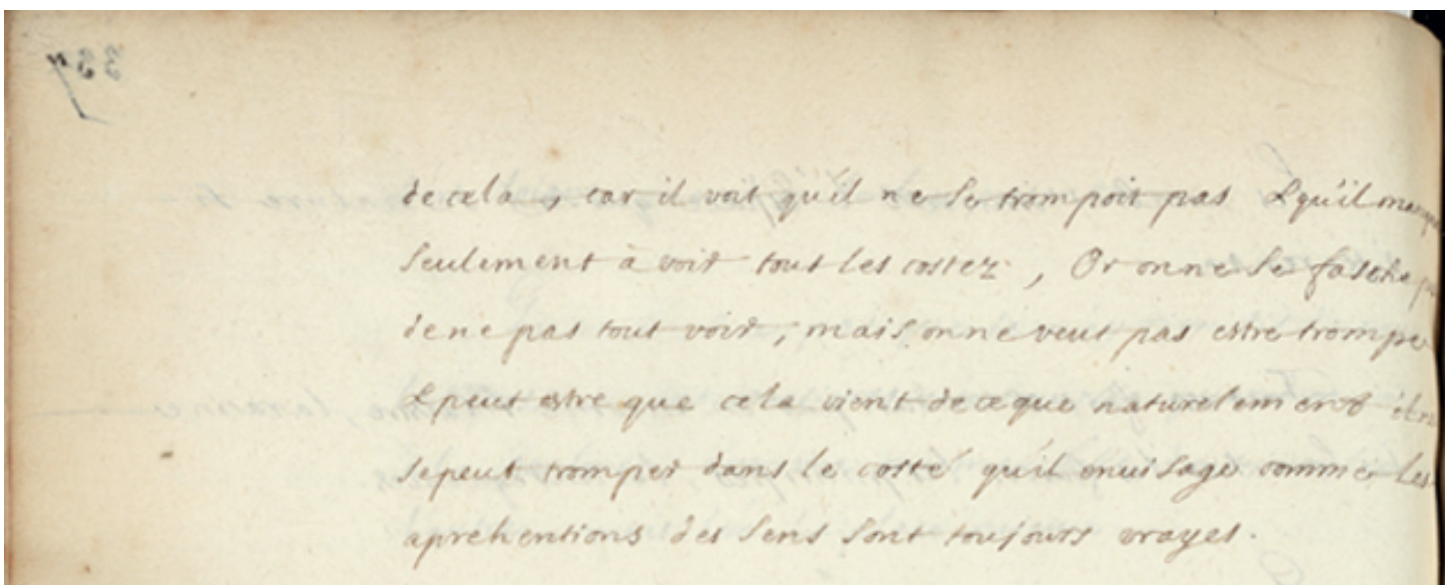 337
de cela, car il voit qu'il ne se trompoit pas & qu'il
seulement à voir tous les costez, Or on ne se fasche
de ne pas tout voir, mais on ne veut pas estre trompé
& peut estre que cela vient de ce que naturelement
se peut tromper dans le costé qu'il envisage comme les
aprehentions des sens sont toujours vrayes.